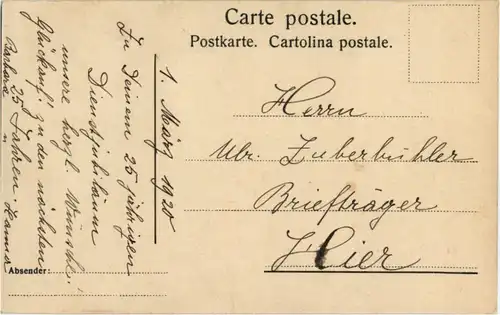 Carte postale.
Postkarte. Cartolina postale.
1. März 1920
Zu Deinem 25 jährigen
Dienstjubiläum
unsere herzl. Wünsche!
Glückauf! zu den nächsten
25 Jahren.
Barbara u. Hanna
Absender:
Herrn
Ulr. Zuberbühler
Briefträger
Hier